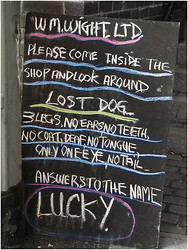 W.M.WIGHT LTD
PLEASE COME INSIDE THE
SHOP AND LOOK AROUND
LOST DOG
3 LEGS, NO EARS NO TEETH,
NO COAT, DEAF, NO TONGUE,
ONLY ONE EYE, NO TAIL...
ANSWERS TO THE NAME
LUCKY.